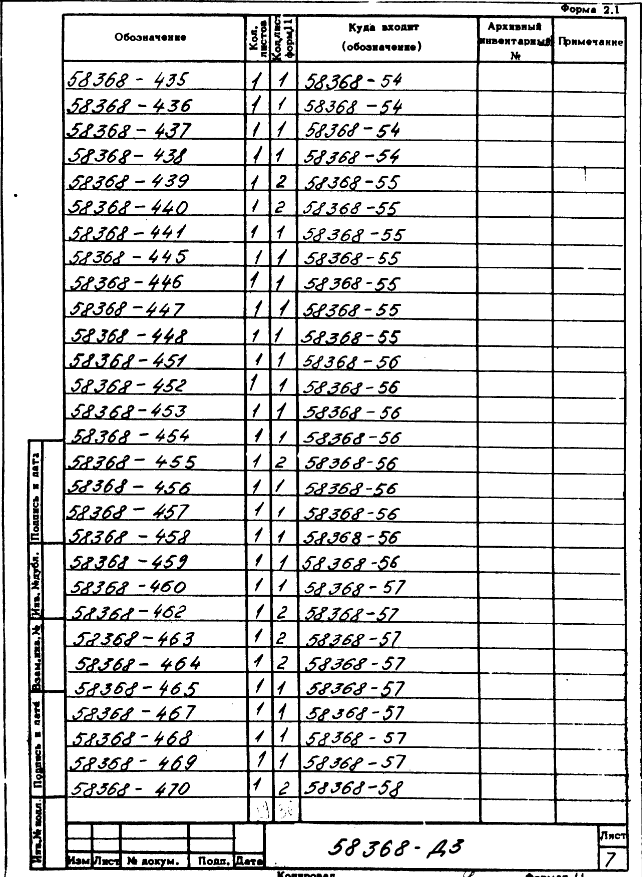 Форма 2.1
Обозначение Кол. листов Кол. лист форм. 11 Куда входит (обозначение) Архивный инвентарный № Примечание
58368-435 1 1 58368-54
58368-436 1 1 58368-54
58368-437 1 1 58368-54
58368-438 1 1 58368-54
58368-439 1 2 58368-55
58368-440 1 2 58368-55
58368-441 1 1 58368-55
58368-445 1 1 58368-55
58368-446 1 1 58368-55
58368-447 1 1 58368-55
58368-448 1 1 58368-55
58368-451 1 1 58368-56
58368-452 1 1 58368-56
58368-453 1 1 58368-56
58368-454 1 1 58368-56
58368-455 1 2 58368-56
58368-456 1 1 58368-56
58368-457 1 1 58368-56
58368-458 1 1 58368-56
58368-459 1 1 58368-56
58368-460 1 1 58368-57
58368-462 1 2 58368-57
58368-463 1 2 58368-57
58368-464 1 2 58368-57
58368-465 1 1 58368-57
58368-467 1 1 58368-57
58368-468 1 1 58368-57
58368-469 1 1 58368-57
58368-470 1 2 58368-58
Подпись и дата
Инв. № дубл.
Взам. инв. №
Подпись и дата
Инв. № подл.
Изм Лист № докум. Подп. Дата
58368-Д3
Лист
7
Копировал Формат 11